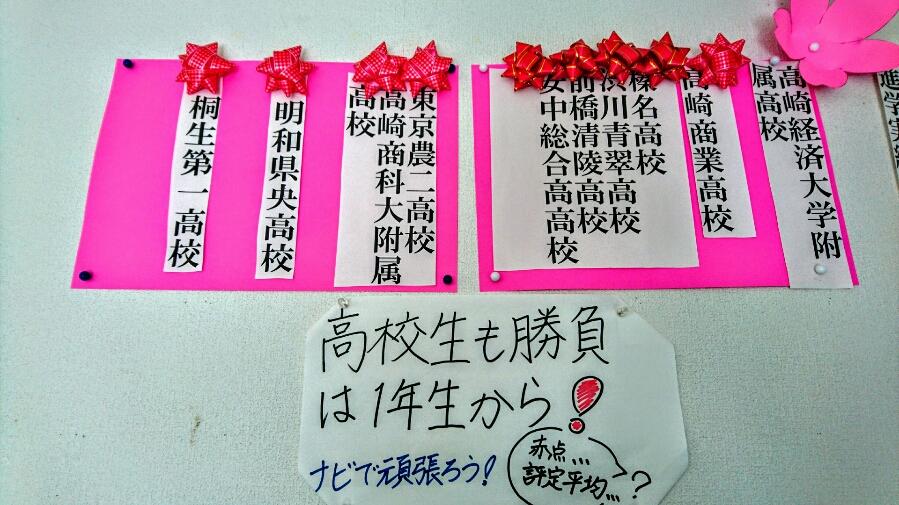 進学実
高崎経済大学附
属高校
高崎商業高校
榛名高校
渋川青翠高校
前橋清陵高校
安中総合高高校
東京農二高校
高崎商科大附属
高校
明和県央高校
桐生第一高校
高校生も勝負
は1年生から!
ナビで頑張ろう!
赤点...
評定平均...?